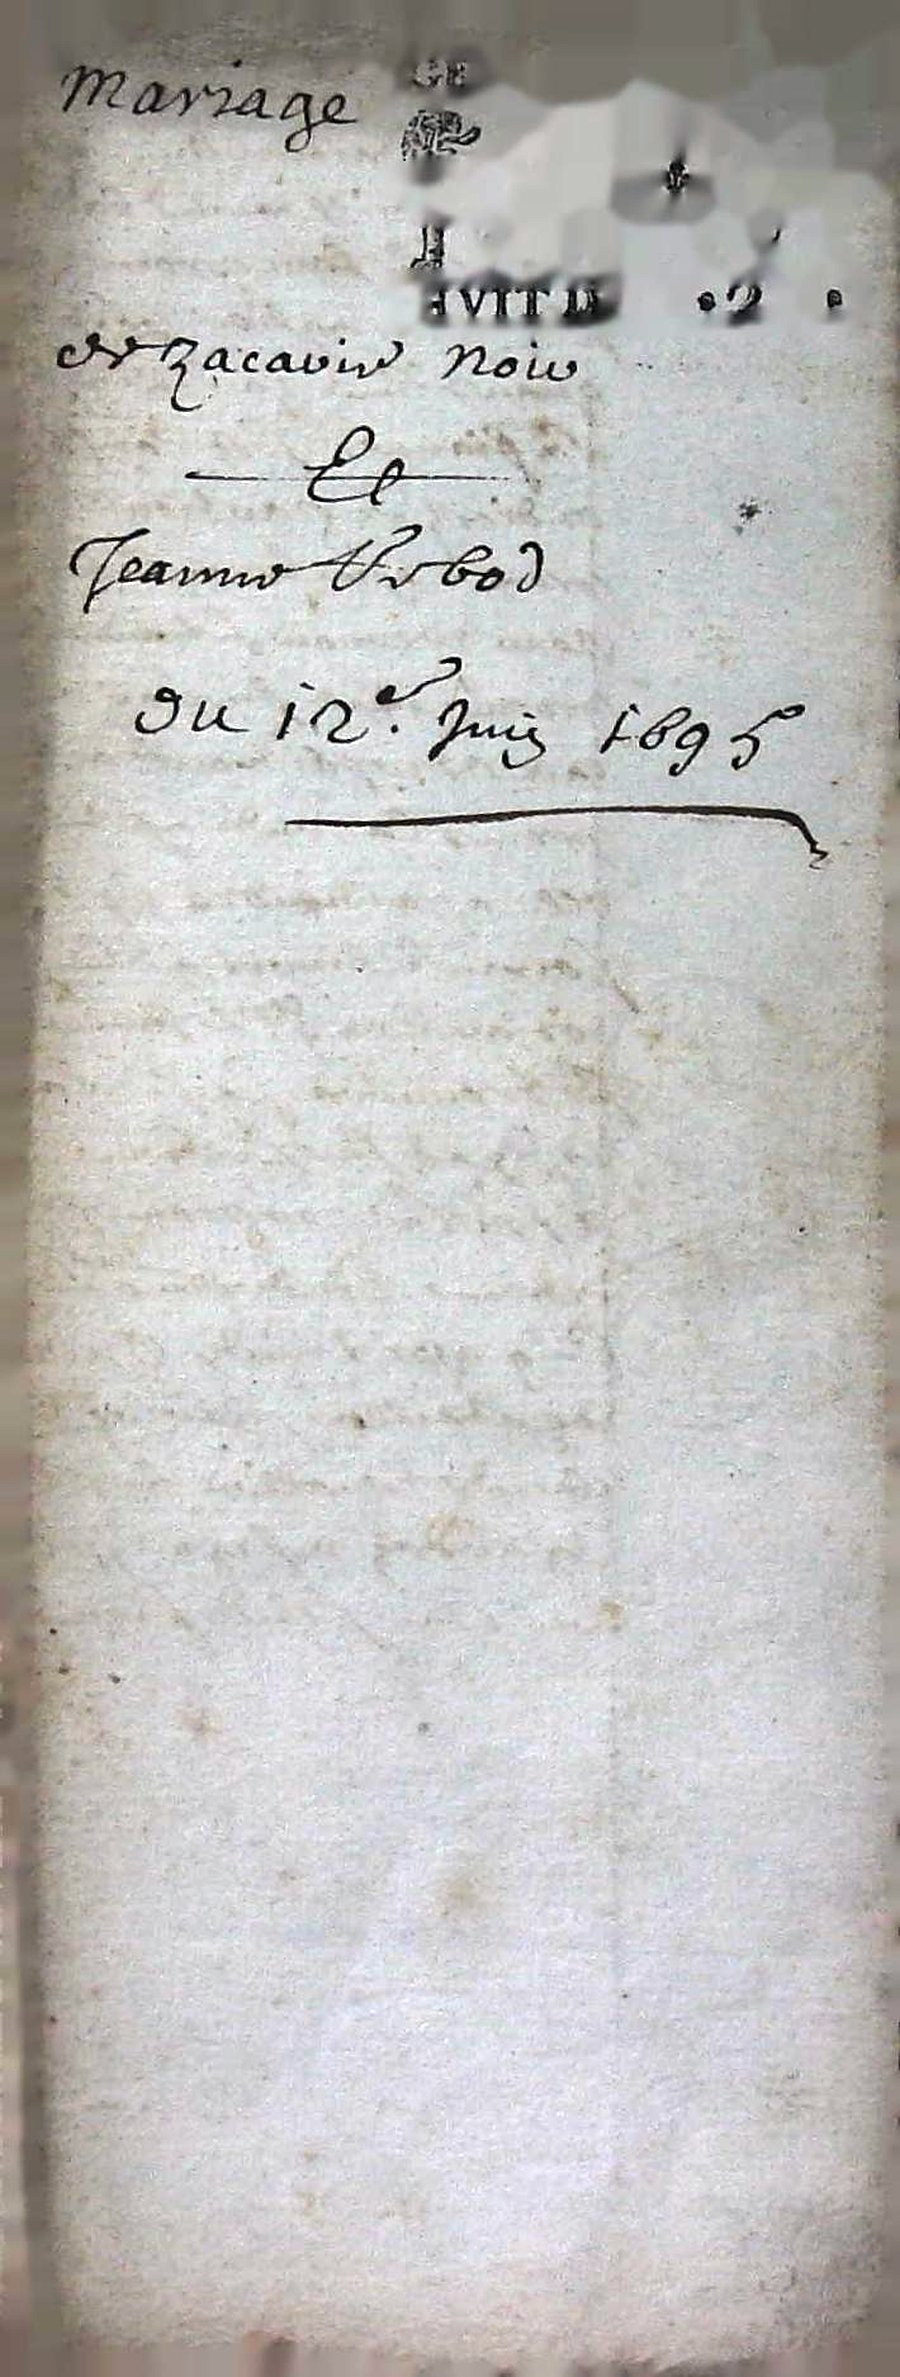 Mariage
de Zacarie Noir
Et
Jeanne Verbod
du 12e. Juin 1695